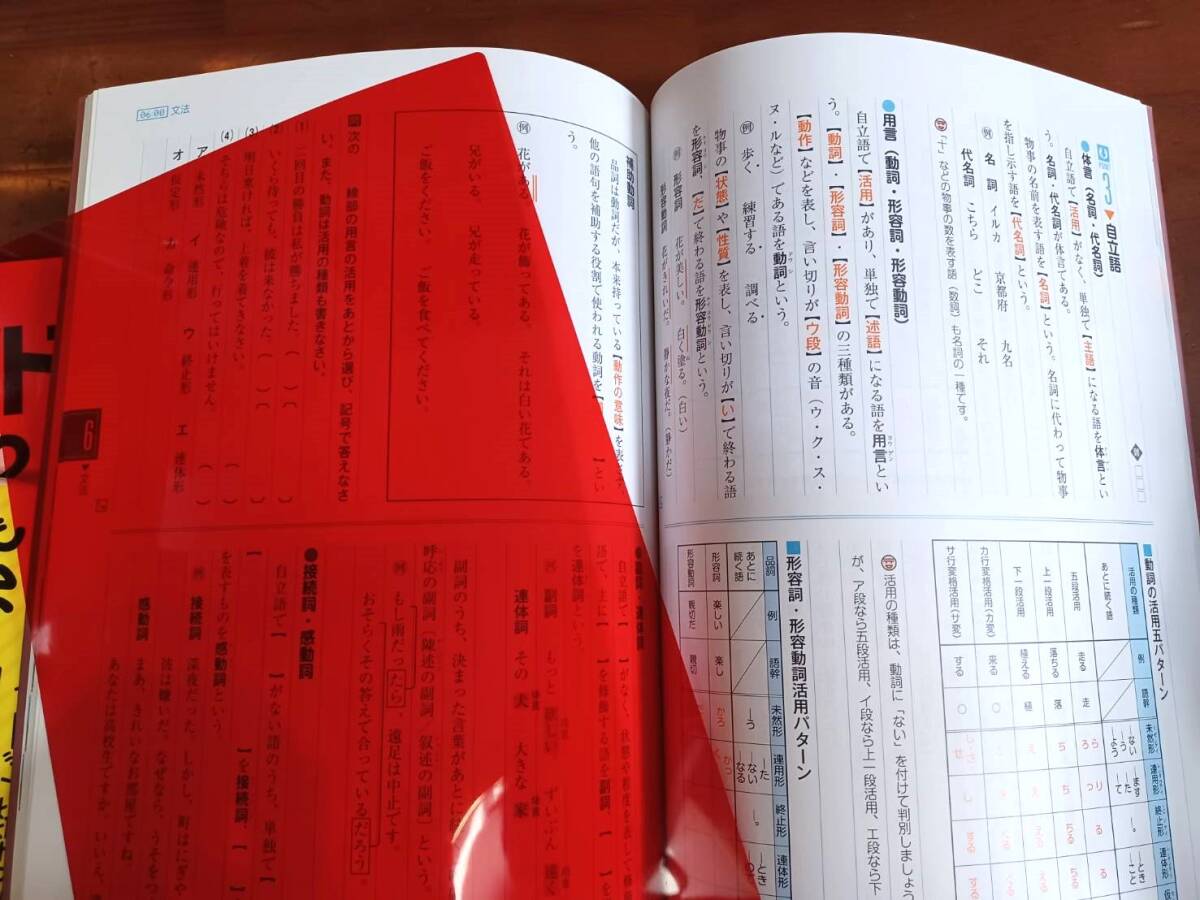 3 ▼ 自立語
●体言(名詞・代名詞)
自立語で【活用】がなく、単独で【主語】になる語を体言とい
う。名詞・代名詞が体言である。
物事の名前を表す語を【名詞】という。名詞に代わって物事
を指し示す語を【代名詞】という。
例 名詞 イルカ 京都府 九名
代名詞 こちら どこ それ
「十」などの物事の数を表す語(数詞)も名詞の一種です。
●用言(動詞・形容詞・形容動詞)
自立語で【活用】があり、単独で【述語】になる語を用言とい
う。【動詞】・【形容詞】・【形容動詞】の三種類がある。
【動作】などを表し、言い切りが【ウ段】の音(ウ・ク・ス・
ヌ・ルなど)である語を動詞という。
例 歩く 練習する 調べる
物事の【状態】や【性質】を表し、言い切りが【い】で終わる語
を形容詞、【だ】で終わる語を形容動詞という。
例 形容詞 花が美しい。 白く塗る。(白い)
形容動詞 花がきれいだ。 静かな夜だ。(静かだ)
■動詞の活用五パターン
活用の種類 例 語幹 未然形 連用形 終止形 連体形
あとに続く語 ―ない ―よう ―ます ―た ―て ―。 ―とき ―こと
五段活用 走る 走 ら ろ り っ る る
上一段活用 落ちる 落 ち ち ちる ちる
下一段活用 植える 植 え え える える
カ行変格活用(カ変) 来る ○
サ行変格活用(サ変) する ○ し さ せ し する する
活用の種類は、動詞に「ない」を付けて判別しましょう
が、ア段なら五段活用、イ段なら上一段活用、エ段なら下
■形容詞・形容動詞活用パターン
品詞 例 語幹 未然形 連用形 終止形 連体形
あとに続く語 ―う ―た ―ない ―なる ―。 ―とき
形容詞 楽しい 楽し かろ かっ く
形容動詞 親切だ 親切
06:00 文法
補助動詞
品詞は動詞だが、本来持っている【動作の意味】を表さず、
他の語句を補助する役割で使われる動詞を【 】とい
う。
例 花がある。 花が飾ってある。 それは白い花である。
兄がいる。 兄が走っている。
ご飯をください。 ご飯を食べてください。
問 次の 線部の用言の活用をあとから選び、記号で答えなさ
い。また、動詞は活用の種類も書きなさい。
(1) 一回目の勝負は私が勝ちました。( )〔 〕
(2) いくら待っても、彼は来なかった。( )〔 〕
(3) 明日寒ければ、上着を着てきなさい。( )
(4) そちらは危険なので、行ってはいけません。( )〔 〕
ア 未然形 イ 連用形 ウ 終止形 エ 連体形
オ 仮定形 カ 命令形
6 ▼文法
自立語で【 】がなく、状態や程度を表して
語で、主に【 】を修飾する語を副詞、【 】
を連体詞という。
例 副詞 もっと欲しい ずいぶん遠く
連体詞 その犬 大きな家
副詞のうち、決まった言葉があとに
呼応の副詞(陳述の副詞・叙述の副詞)という。
例 もし雨だったら、遠足は中止です。
おそらくその答えで合っているだろう。
●接続詞・感動詞
自立語で【 】がない語のうち、単独で【
】を接続詞、【 】
を表すものを感動詞という。
例 接続詞 深夜だった。しかし、町はにぎや
彼は嫌いだ。なぜなら、うそをつ
感動詞 まあ、きれいなお部屋ですね
あなたは高校生ですか。いいえ、